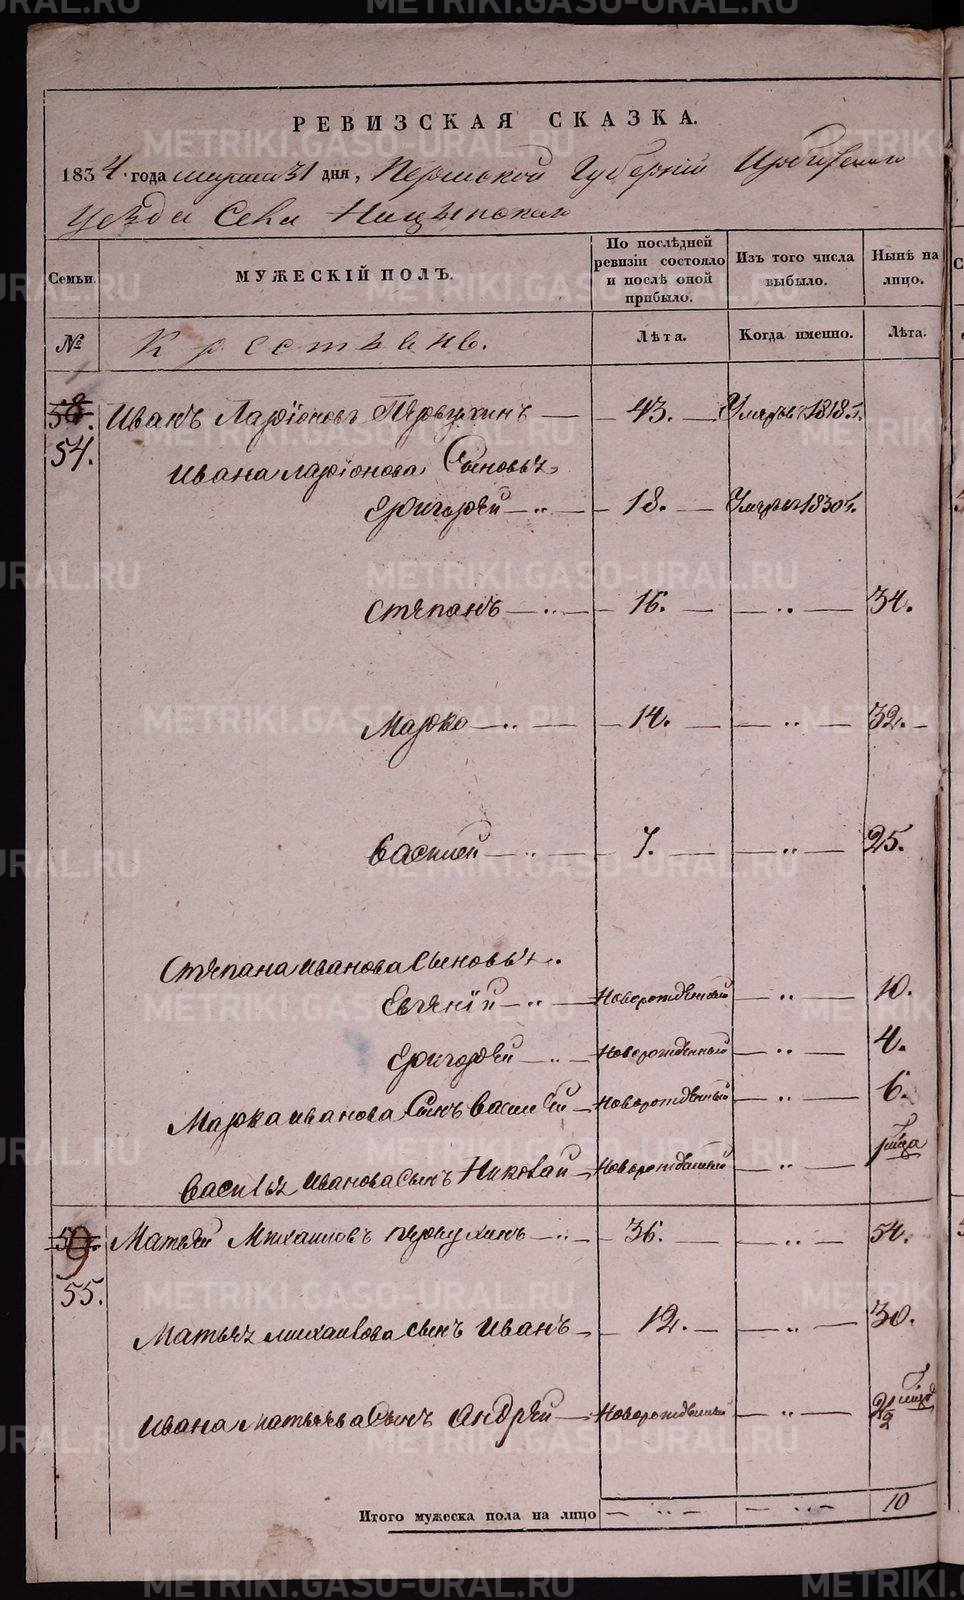 РЕВИЗСКАЯ СКАЗКА.
1834 года марта 31 дня, Пермской Губерніи Ирбитскаго
Уезда Села Ницынскаго
Семьи. МУЖЕСКІЙ ПОЛЪ. По послѣдней ревизіи состояло и послѣ оной прибыло. Изъ того числа выбыло. Нынѣ на лицо.
№ Крестьяне. Лѣта. Когда именно. Лѣта.
58. Иванъ Ларіоновъ Первухинъ — 43. — Умеръ 1818 г.
54.
Ивана Ларіонова Сыновья
Григорей — „ — 18. — Умеръ 1830 г.
Степанъ — „ — 16. — „ — 34.
Марко — „ — 14. — „ — 32.
Василей — „ — 7. — „ — 25.
Степана Иванова Сыновья
Евгеній — „ — Новорожденный — „ — 10.
Григорей — „ — Новорожденный — „ — 4.
Марка Иванова Сынъ Василей — Новорожденный — „ — 6.
Василья Иванова Сынъ Николай — Новорожденный — „ —
59. Матвей Михаиловъ Первухинъ — „ — 36. — „ — 54.
55.
Матвея Михаилова сынъ Иванъ — 12. — „ — 30.
Ивана Матвеева Сынъ Андрей — Новорожденный — „ —
Итого мужеска пола на лицо — „ — — „ — 10
METRIKI.GASO-URAL.RU